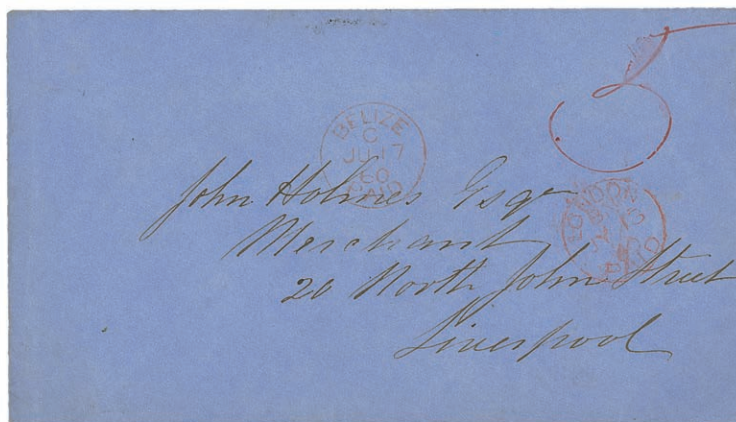 5
BELIZE
C
JU 17
60
PAID
LONDON
PAID
John Holmes Esqr
Merchant
20 North John Street
Liverpool